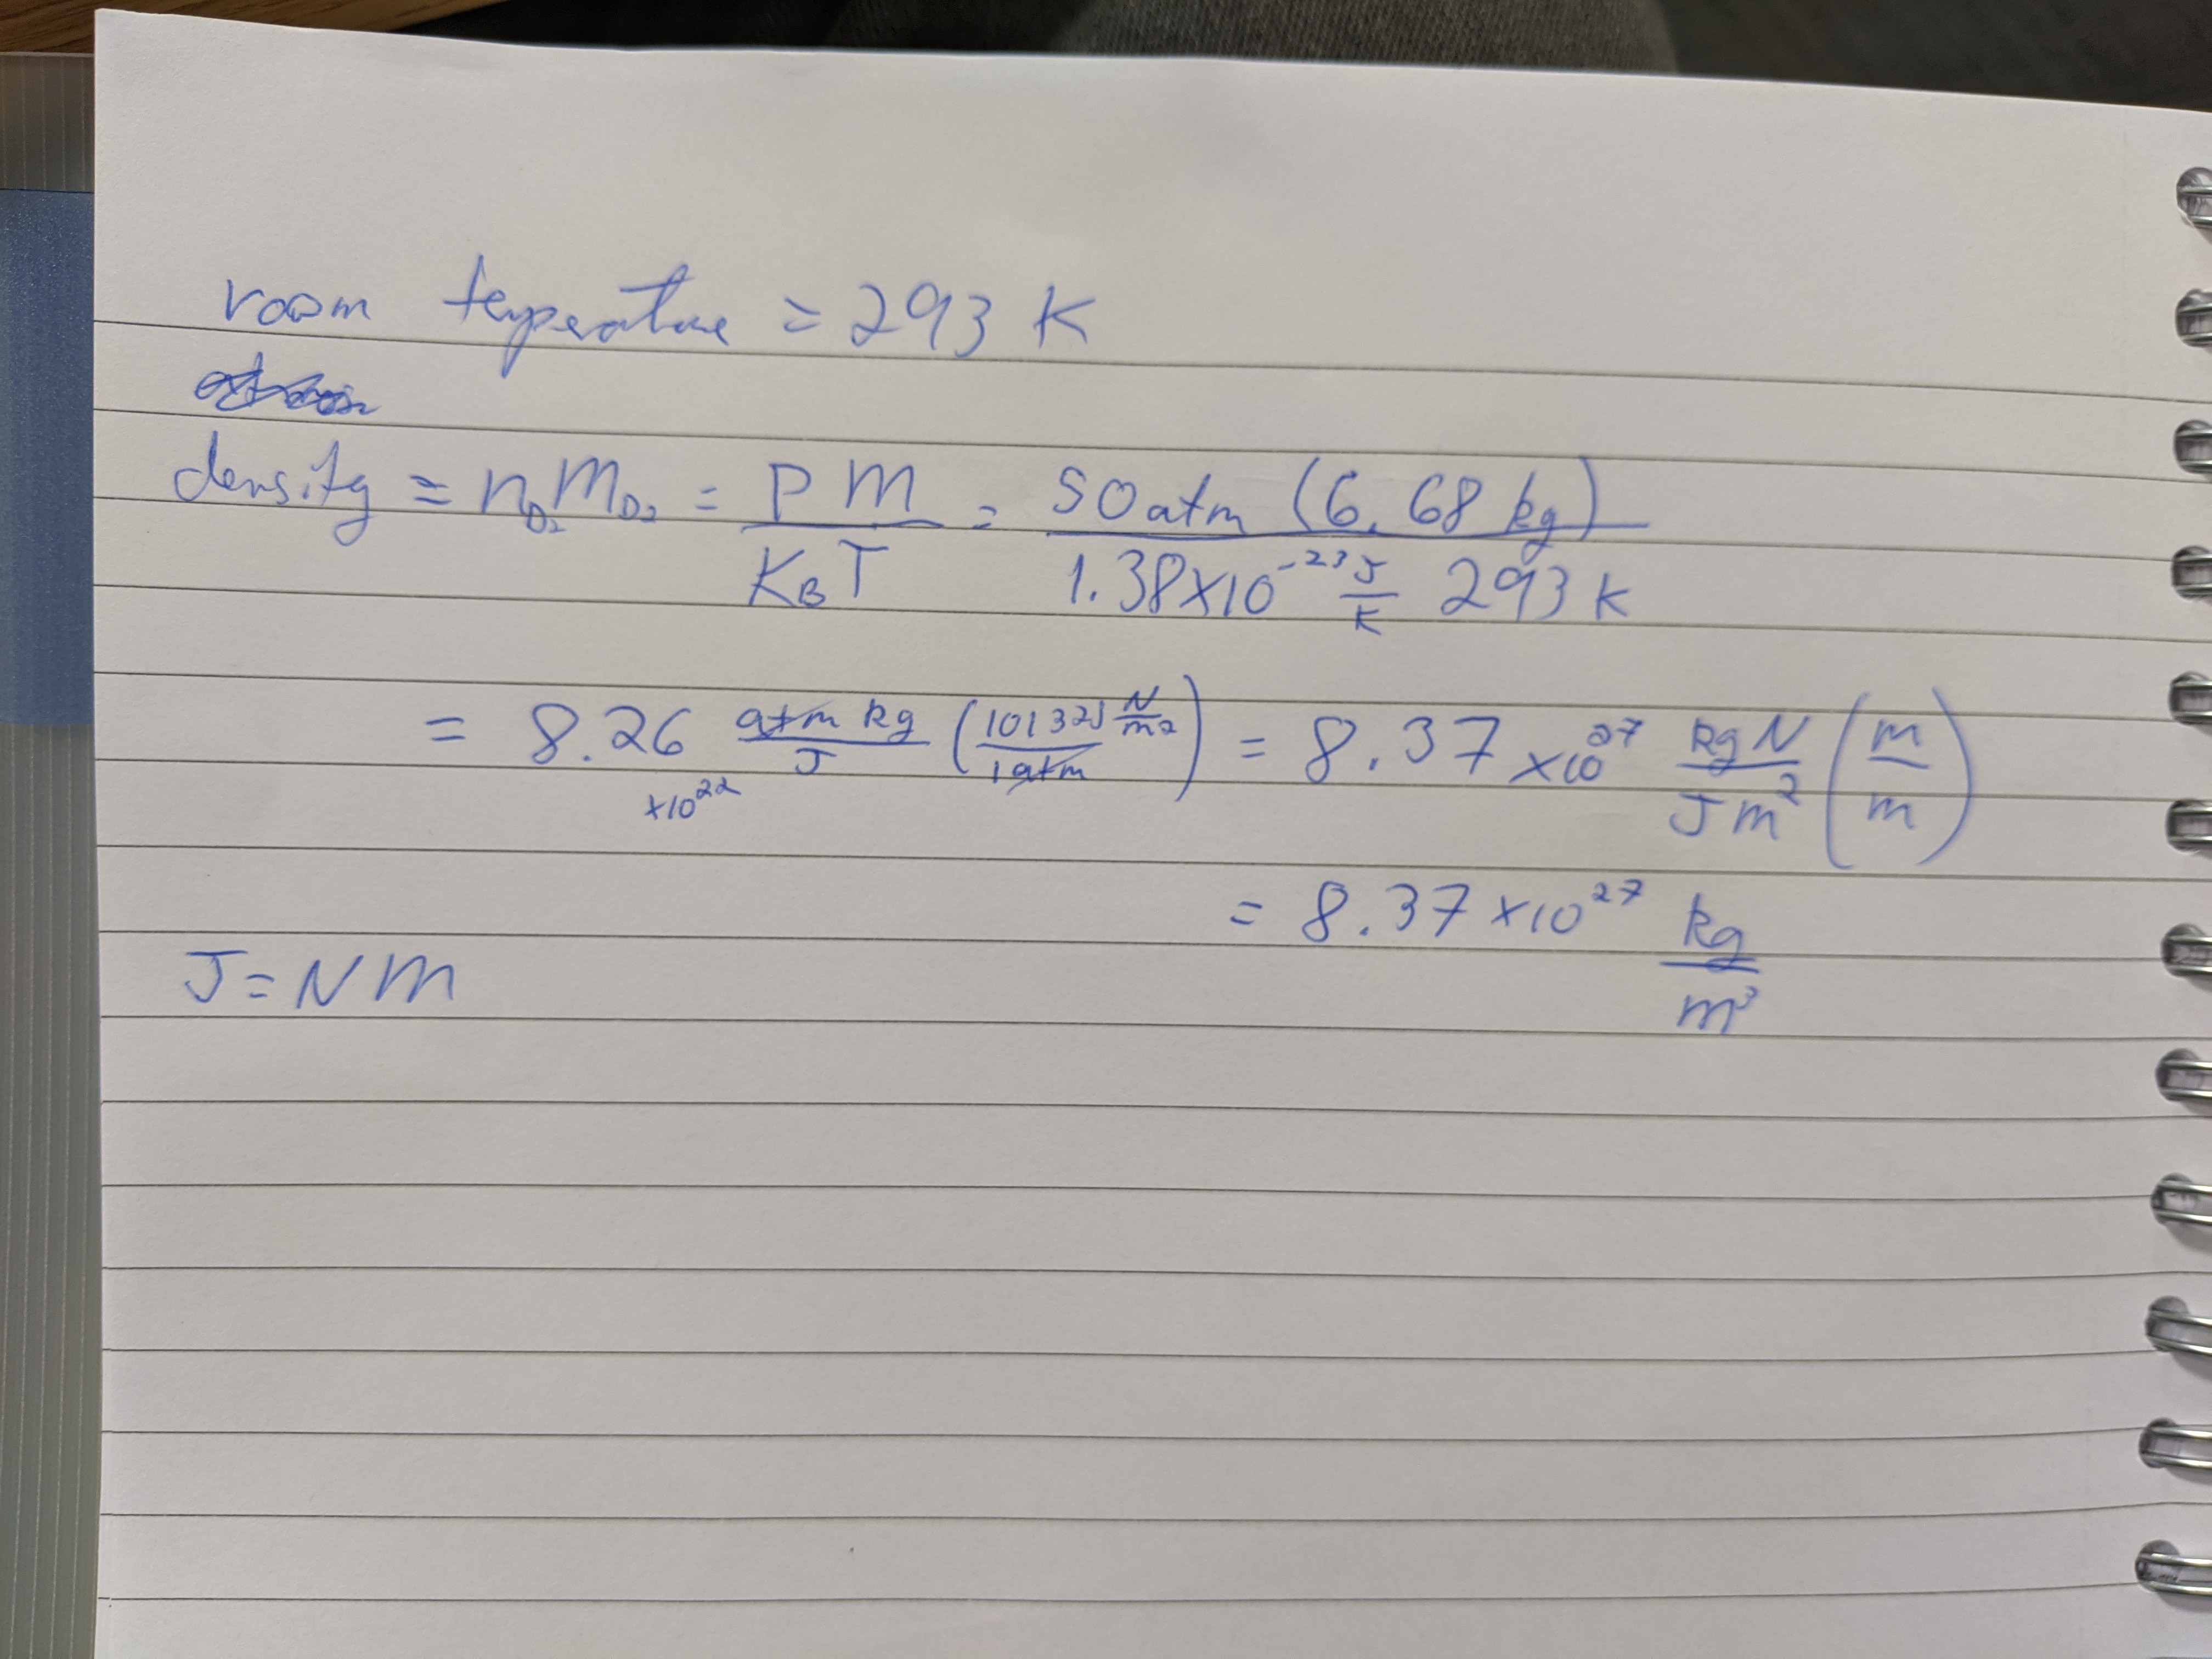 room temperature = 293 K
density = n_{D₂} m_{D₂} = P m / K_B T = 50 atm (6.68 kg) / 1.38×10^{-23} J/K 293 K
= 8.26 ×10^{22} atm kg / J (101325 N/m² / 1 atm) = 8.37 ×10^{27} kg N / J m² (m / m)
= 8.37 ×10^{27} kg / m³
J = N m